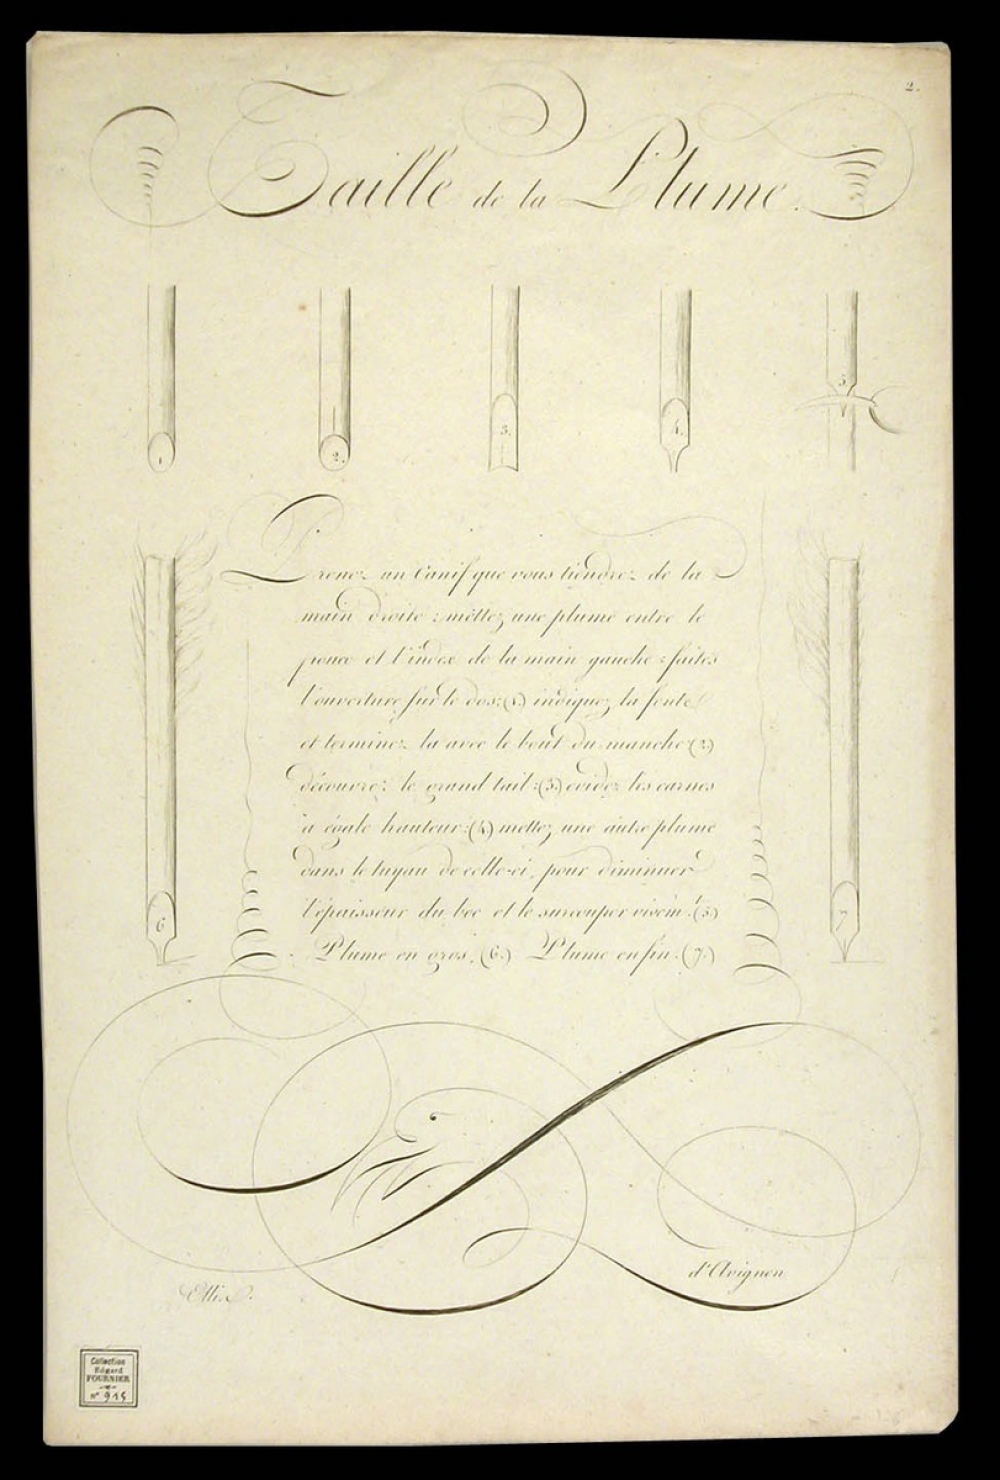 2.
Taille de la Plume.
1
2.
3.
4.
5
Prenez un Canif que vous tiendrez de la
main droite : mettez une plume entre le
pouce et l'index de la main gauche : faites
l'ouverture sur le dos: (1.) indiquez la fente
et terminez la avec le bout du manche (2.)
découvrez le grand tail : (3.) évidez les carnes
à égale hauteur : (4.) mettez une autre plume
dans le tuyau de celle-ci, pour diminuer
l'épaisseur du bec et le surcouper vivem.t (5.)
Plume en gros. (6.) Plume en fin. (7.)
6
7
d'Avignon
Collection
Edgard
FOURNIER
N° 915